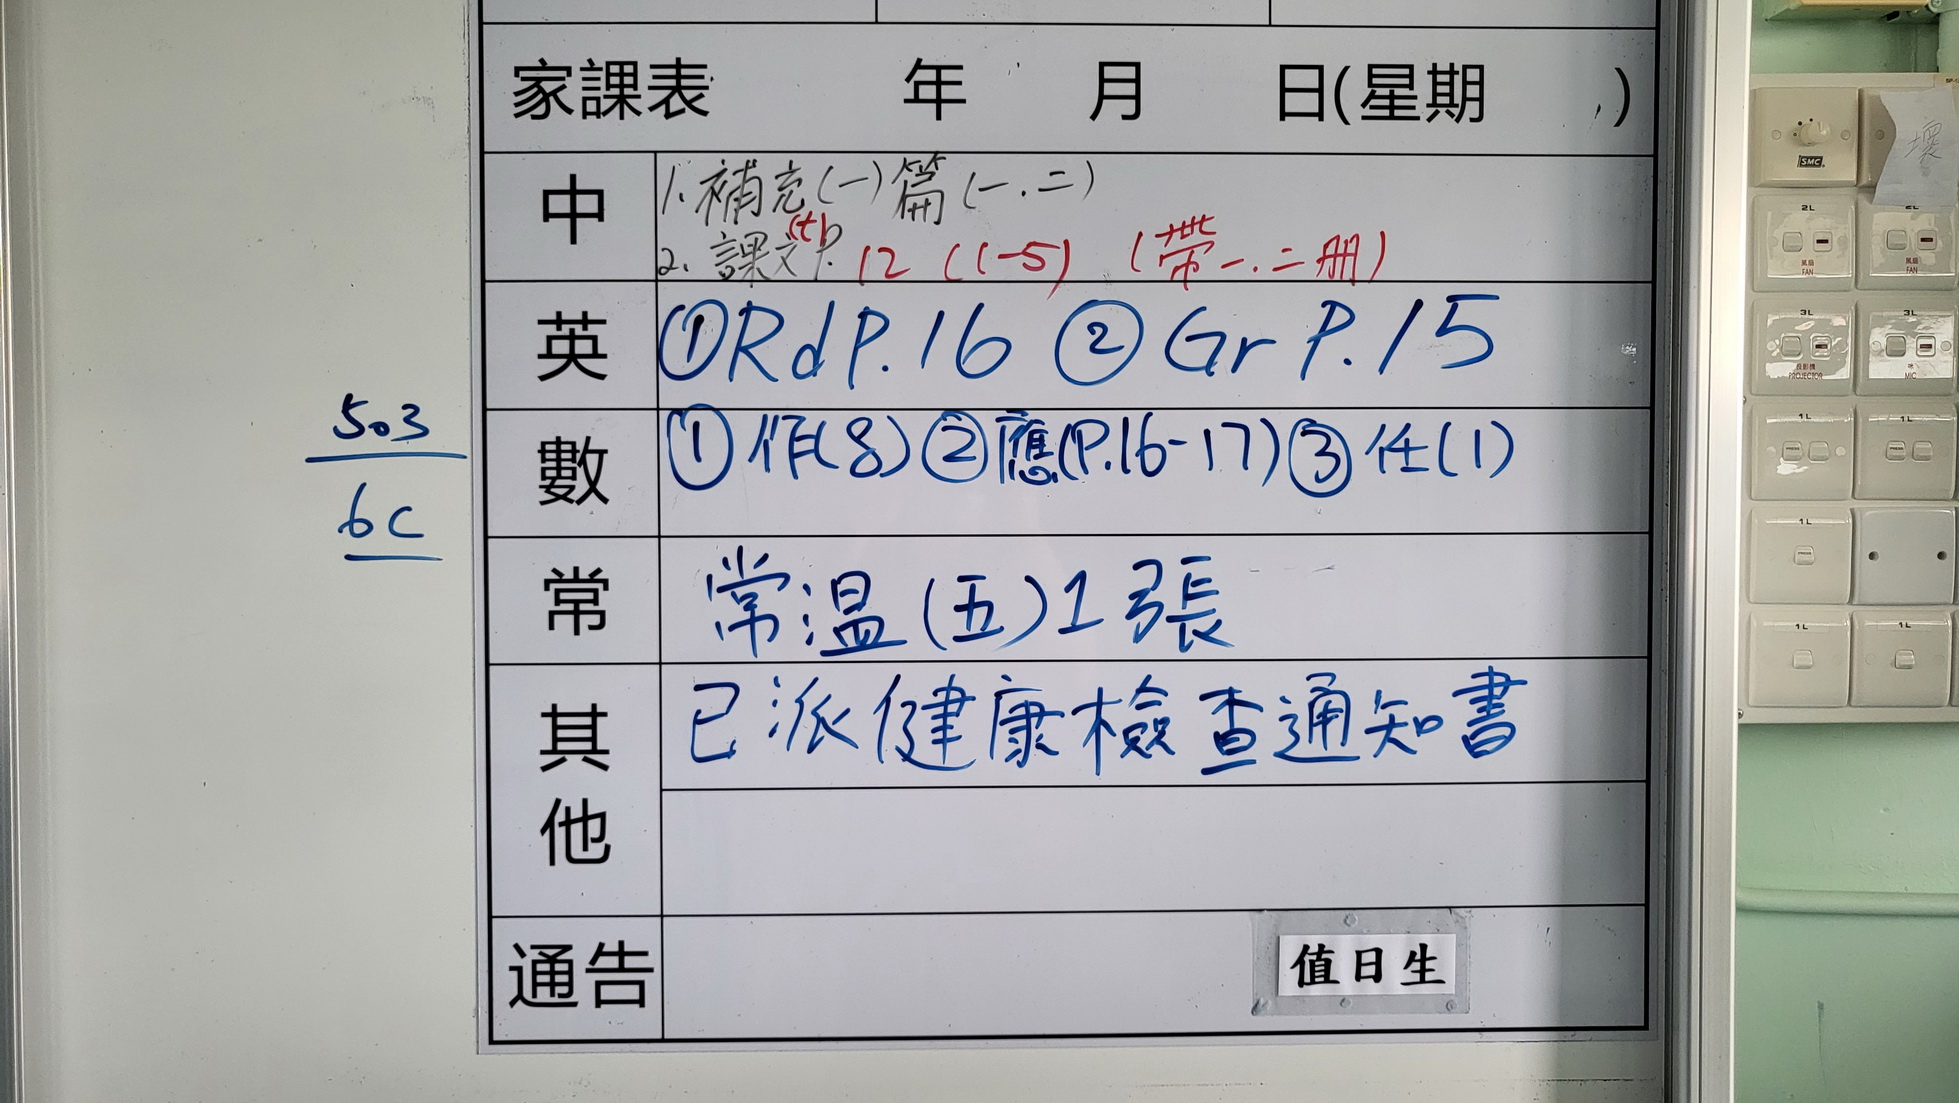 家課表 年 月 日(星期 )
中
1. 補充(一)篇(一.二)
2. 課文(七)P. 12 (1-5) (帶一.二冊)
英
①Rd P.16 ②Gr P.15
數
①作(8)②應(P.16-17)③任(1)
常
常溫(五)1張
其他
已派健康檢查通知書
通告
值日生
503
6C
壞
SMC
2L
風扇
FAN
2L
風扇
FAN
3L
投影機
PROJECTOR
3L
咪
MIC
1L
PRESS
PRESS
1L
PRESS
PRESS
1L
PRESS
1L
1L